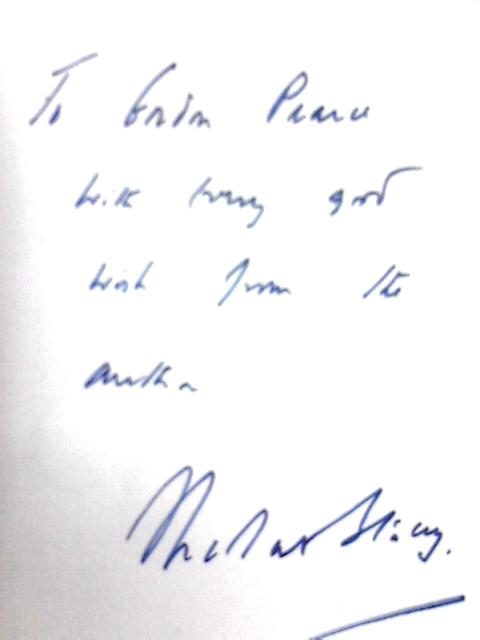 To Gordon Pearce
with every good
wish from the
author
Nicholas Stacey.